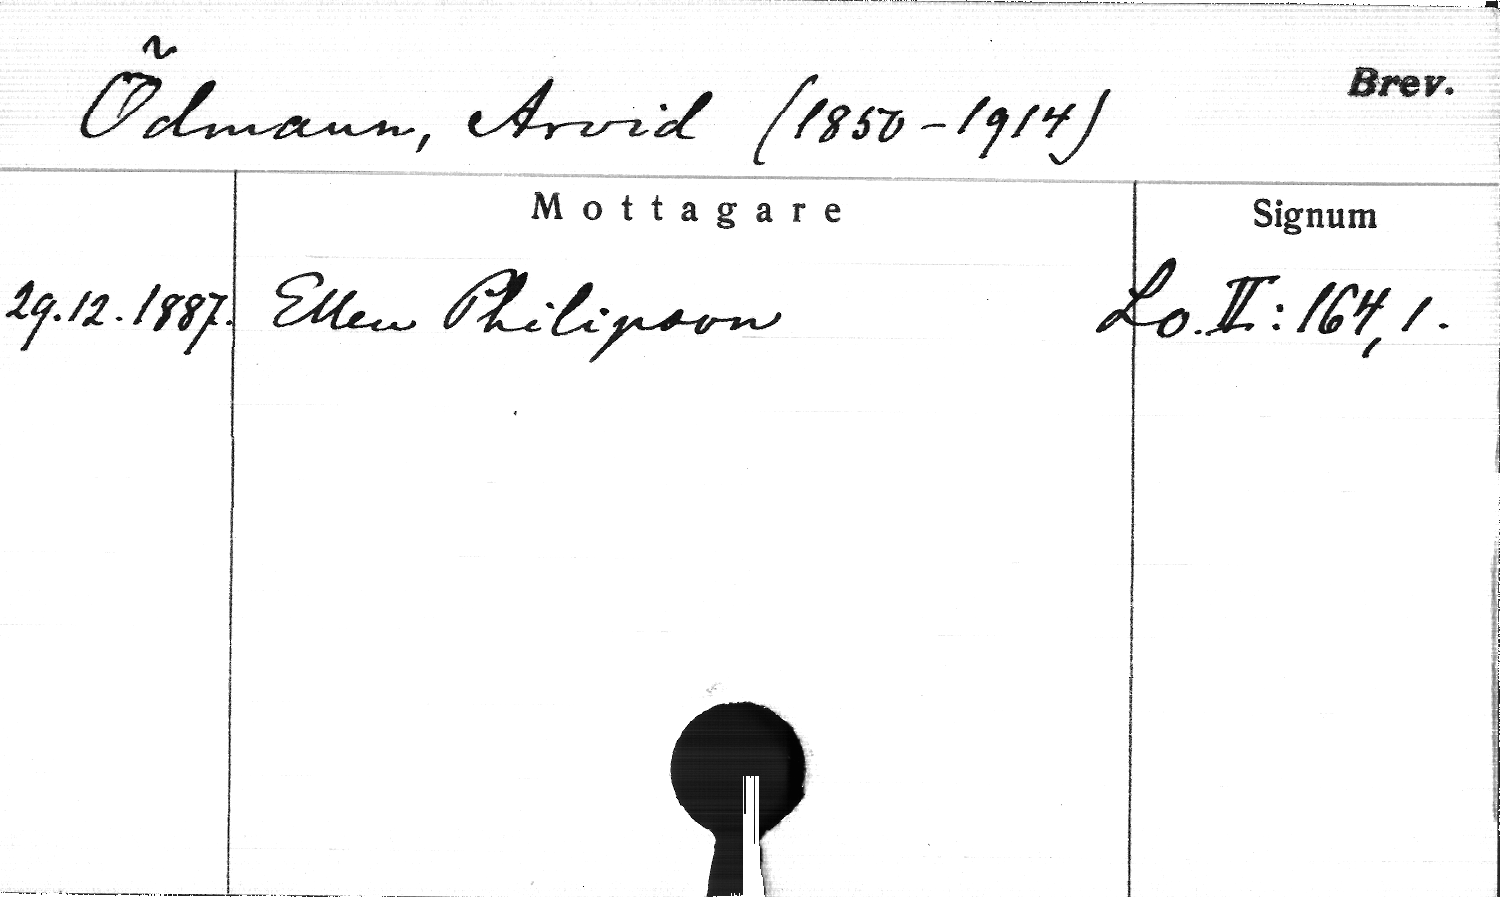 Ödmann, Arvid (1850-1914)
Brev.
Mottagare
Signum
29.12.1887. Ellen Philipson Lo. II: 164, 1.